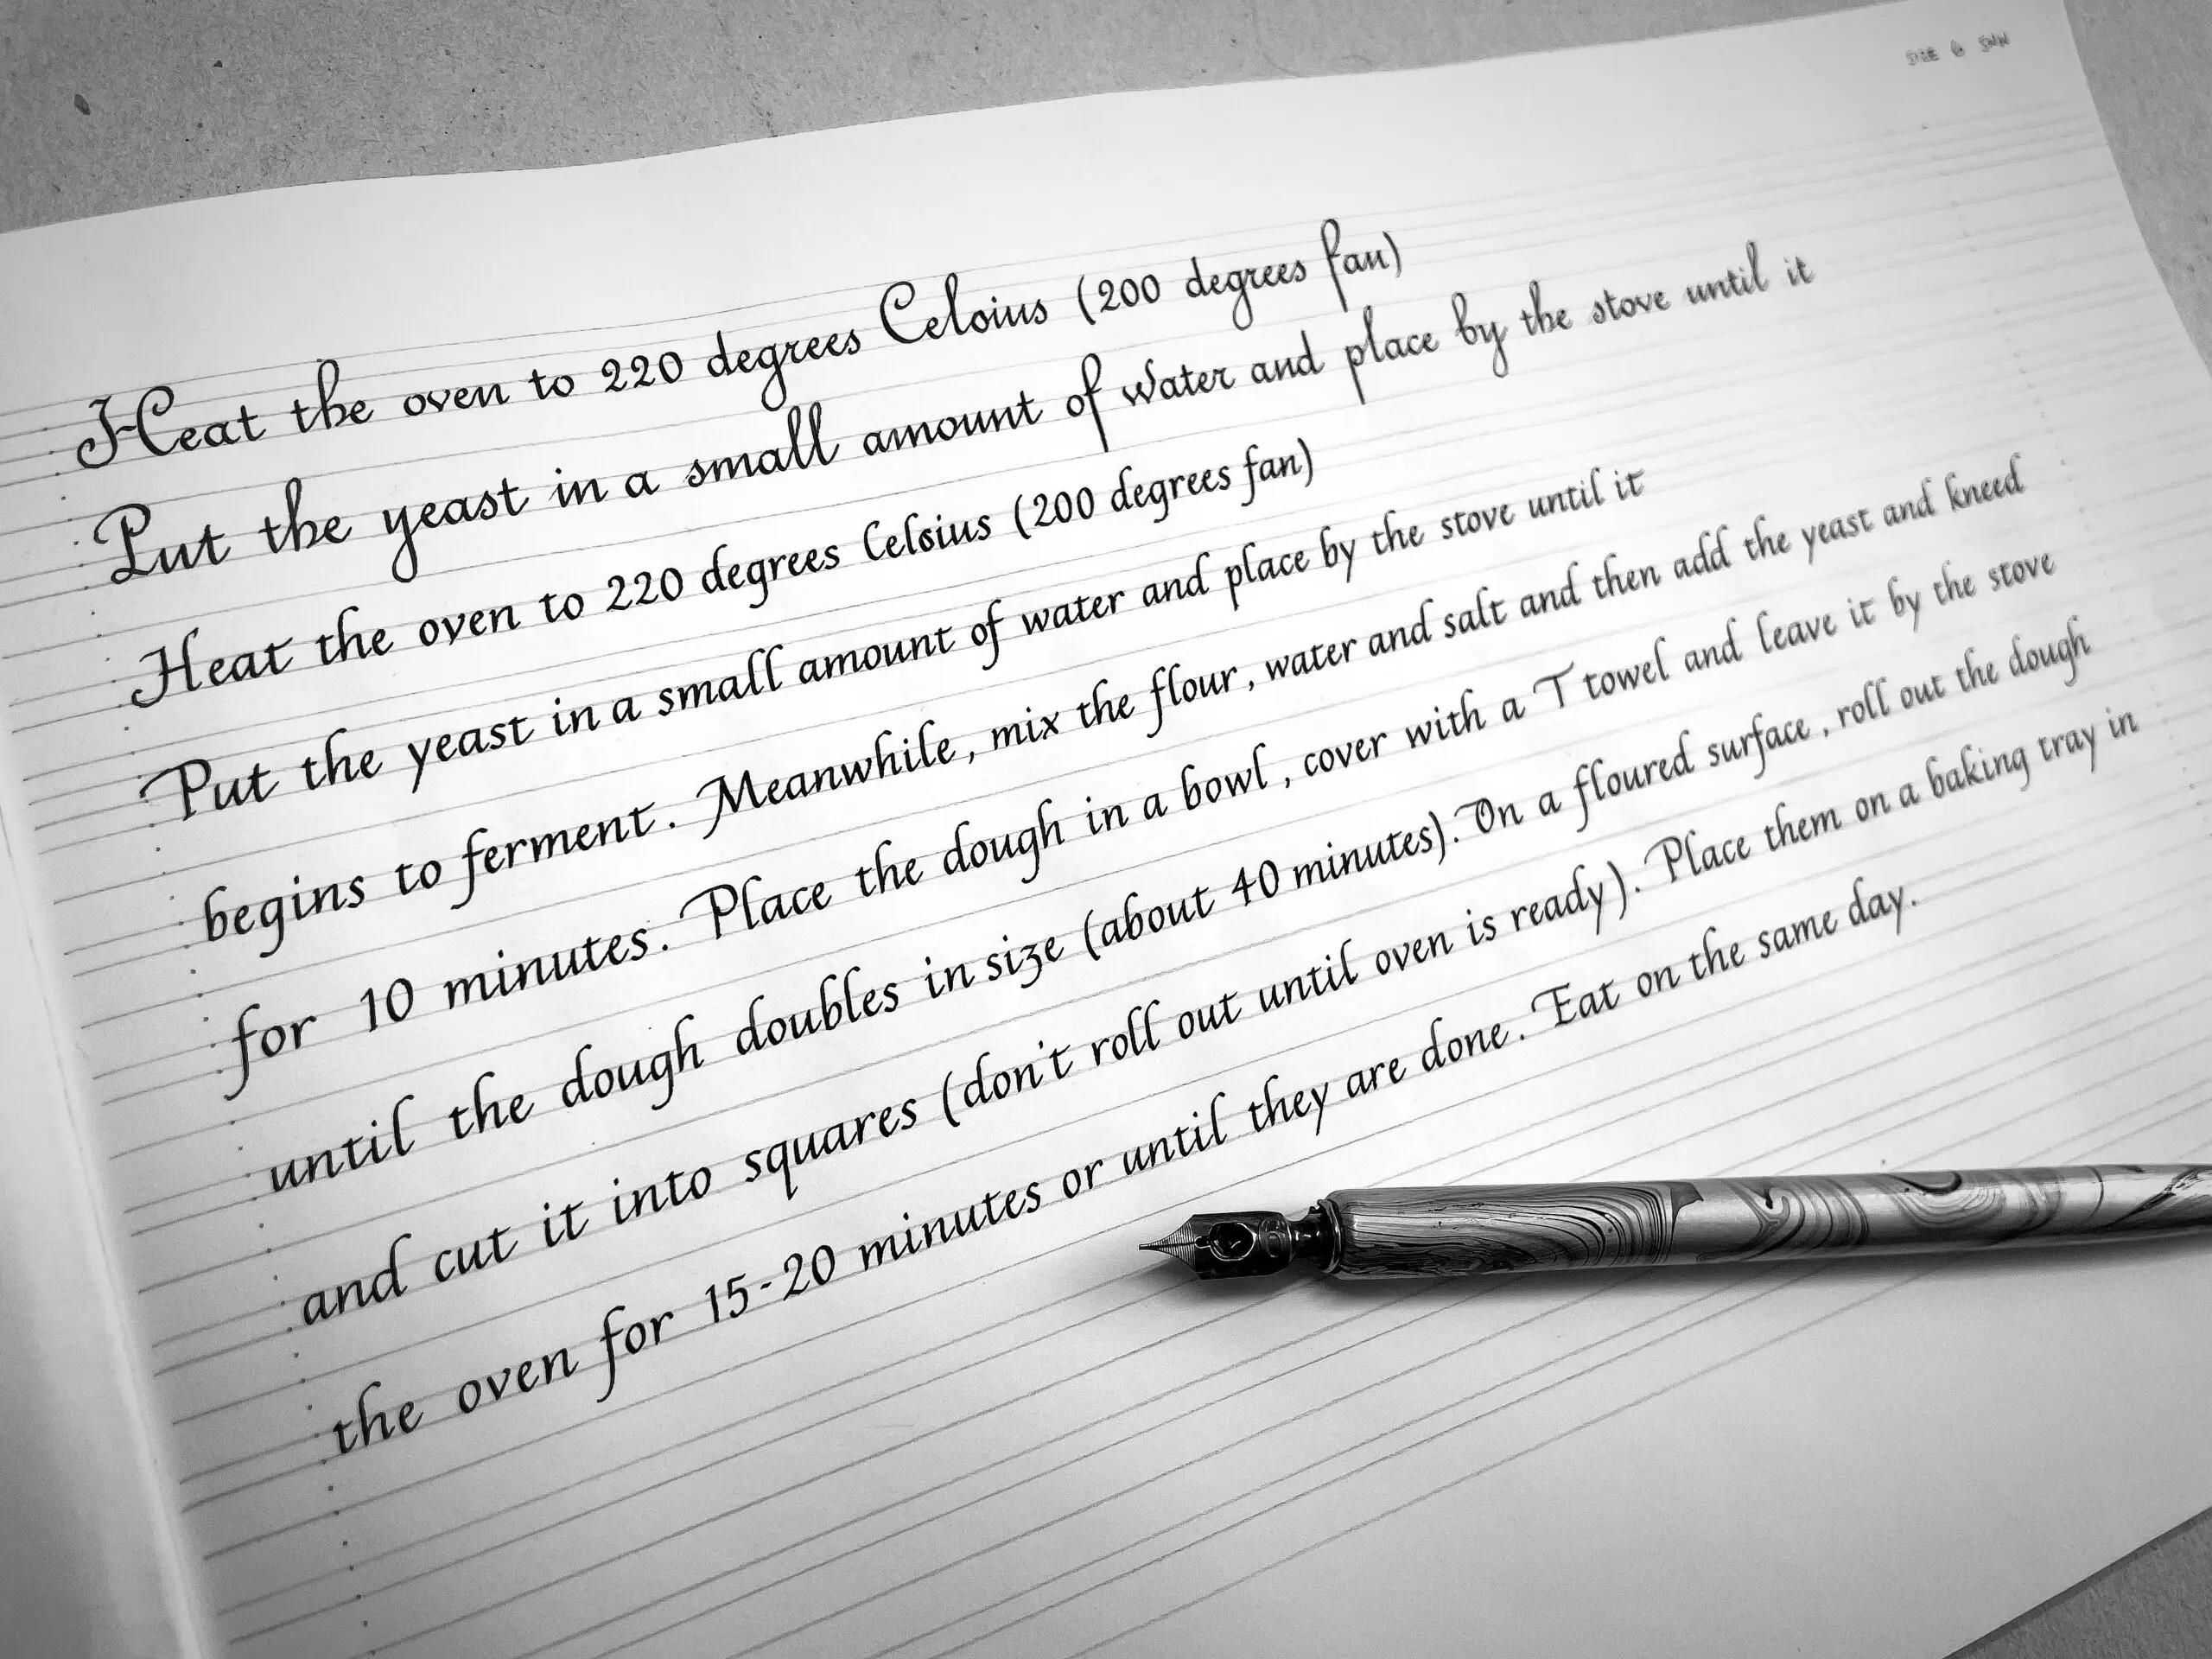 SIZE 6 5MM
Heat the oven to 220 degrees Celsius (200 degrees fan)
Put the yeast in a small amount of water and place by the stove until it
Heat the oven to 220 degrees Celsius (200 degrees fan)
Put the yeast in a small amount of water and place by the stove until it
begins to ferment. Meanwhile, mix the flour, water and salt and then add the yeast and kneed
for 10 minutes. Place the dough in a bowl, cover with a T towel and leave it by the stove
until the dough doubles in size (about 40 minutes). On a floured surface, roll out the dough
and cut it into squares (don't roll out until oven is ready). Place them on a baking tray in
the oven for 15-20 minutes or until they are done. Eat on the same day.